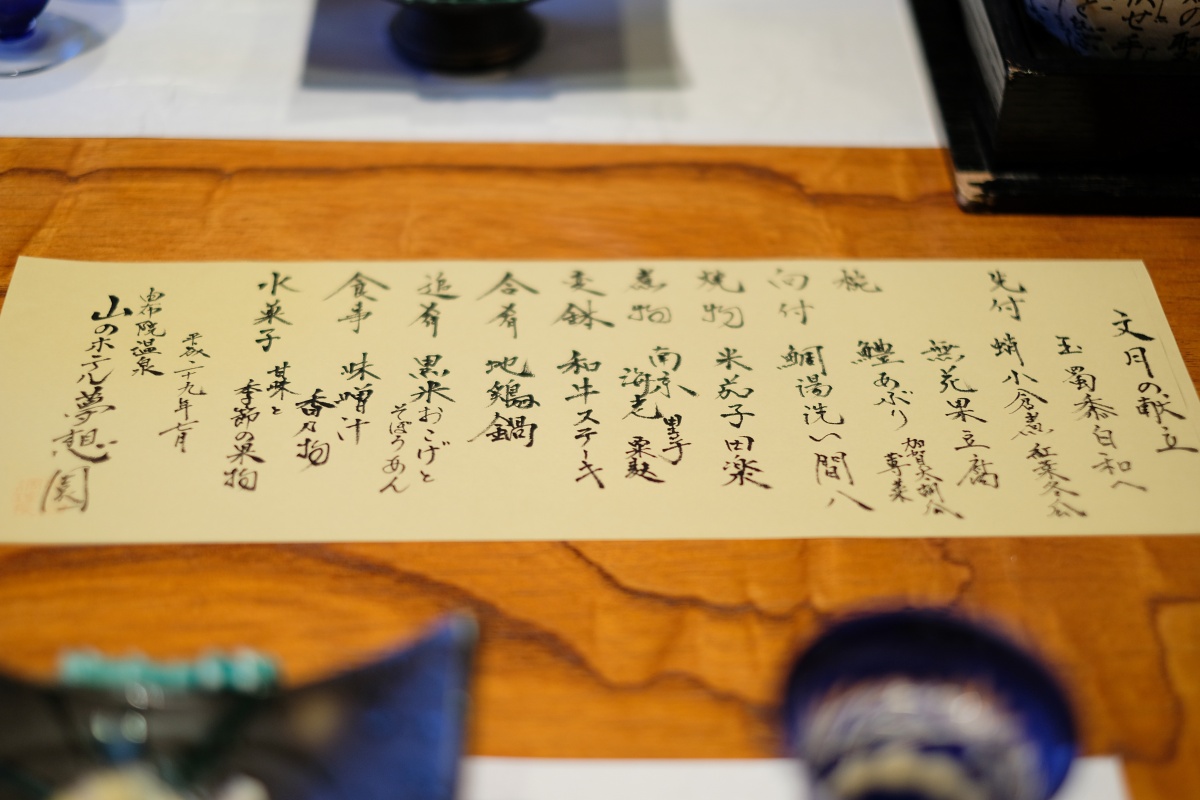 文月の献立
玉蜀黍白和へ
先付 蛸小倉煮 紅葉冬瓜
無花果豆腐
椀 鱧あぶり 加賀太胡瓜 蓴菜
向付 鯛湯洗い 間八
焼物 米茄子田楽
煮物 南京 里芋 海老 粟麩
主鉢 和牛ステーキ
合肴 地鶏鍋
追肴 黒米おこげと そぼろあん
食事 味噌汁 香の物
水菓子 甘味と 季節の果物
平成二十九年七月
由布院温泉
山のホテル夢想園